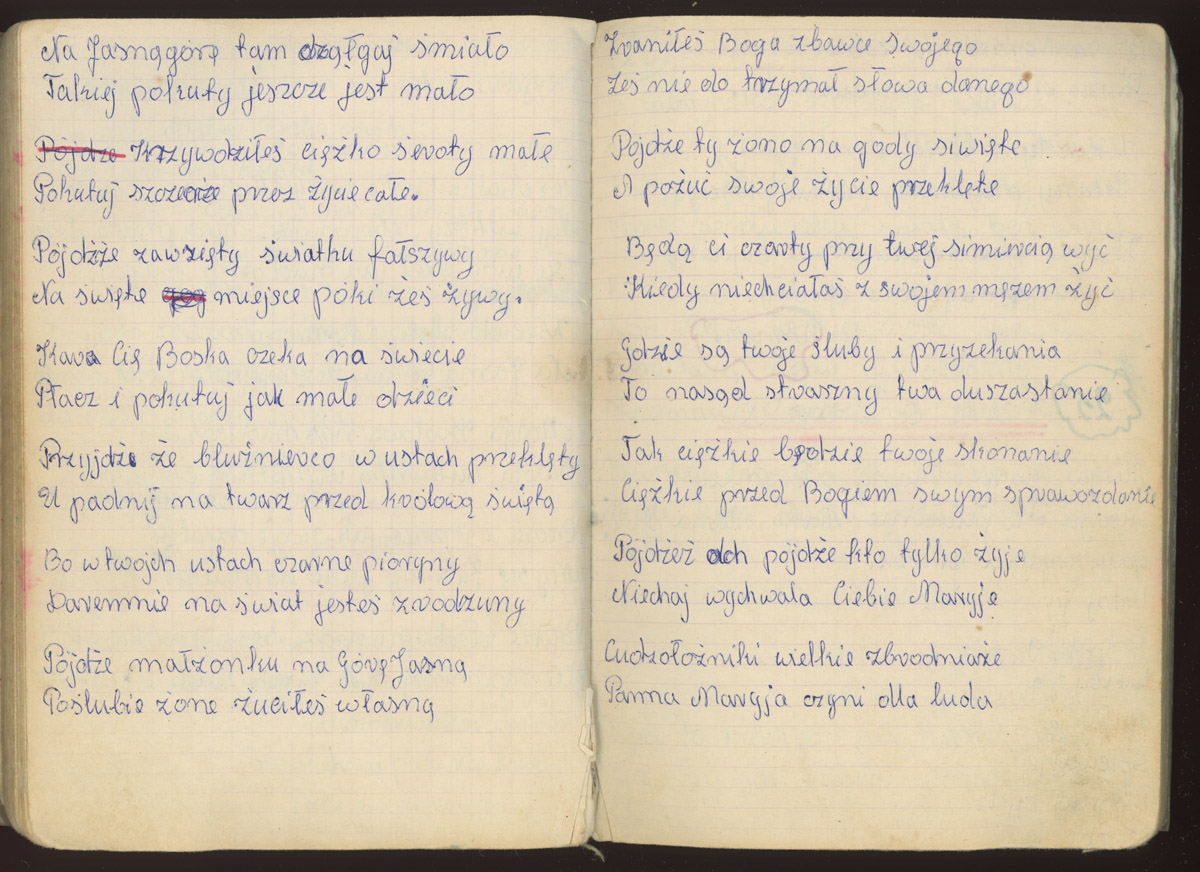 Na Jasnągórę tam czołgaj śmiało
Takiej pokuty jeszcze jest mało
Pójdze Krzywdziłeś ciężko sieroty małe
Pokutuj szczerze przez życie całe.
Pójdźże zawzięty światku fałszywy
Na święte miejsce póki żeś żywy.
Kara Cię Boska czeka na świecie
Płacz i pokutuj jak małe dzieci
Przyjdźe że bluźnierco w ustach przeklęty
U padnij na twarz przed królową świętą
Bo w twojch ustach czarne pioryny
Daremnie na świat jesteś zrodzuny
Pójdże małżonku na Górę Jasną
Poślubie żone żuciłeś własną
Zraniłeś Boga zbawce swojego
Żeś nie do trzymał słowa danego
Pójdźe ty żono na gody siwięte
A pożuć swoje życie przeklęte
Będą ci czarty przy twej simircią wyć
Kiedy niechciałaś z swojem mężem żyć
Gdzie są twoje śluby i przyzekania
To nasąd straszny twa duszastanie
Tak ciężkie będzie twoje skonanie
Ciężkie przed Bogiem swym sprawozdanie
Pójdżeż ach pójdźe kto tylko żyje
Niechaj wychwala Ciebie Maryję
Cudzołożniki wielkie zbrodniaże
Panna Maryja czyni dla luda